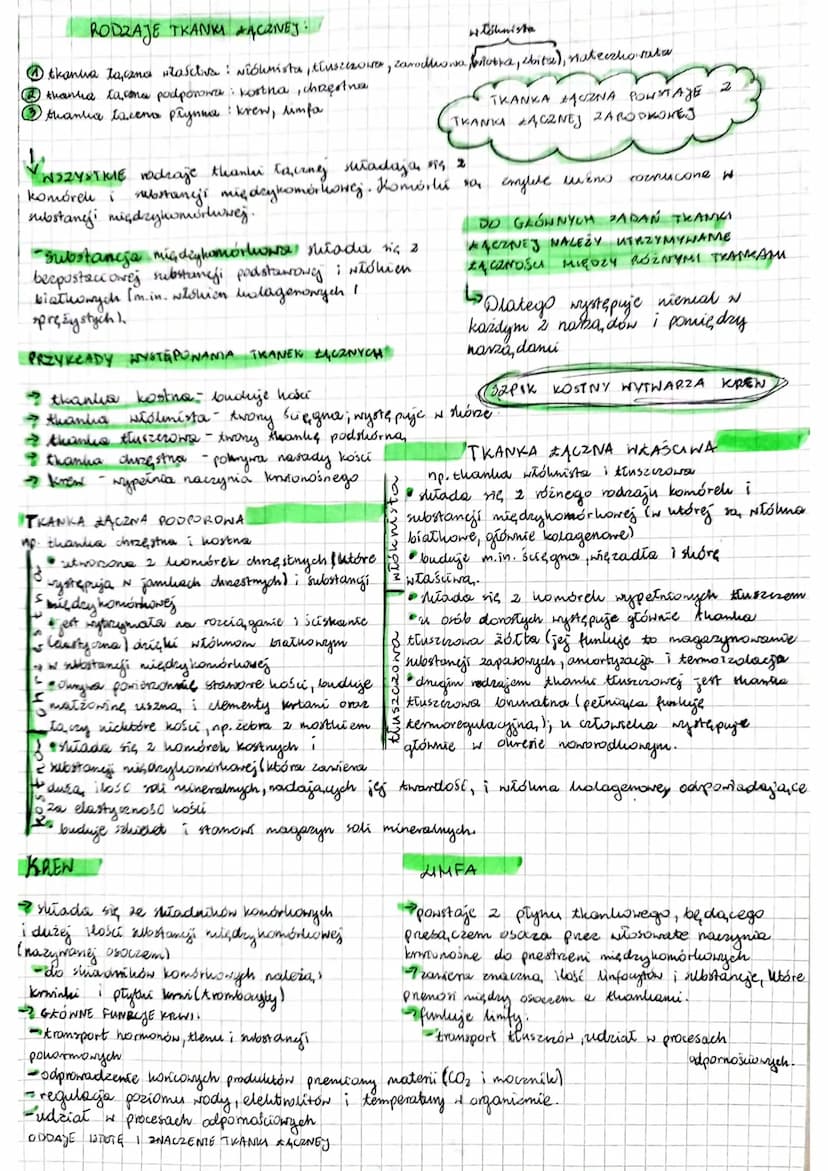 RODZAJE TKANKI ŁĄCZNEJ:
włóknista
① tkanka łączna właściwa: włóknista, tłuszczowa, zarodkowa, (wiotka, zbita), siateczkowata
② tkanka łączna podporowa: kostna, chrzęstna
③ tkanka łączna płynna: krew, limfa
TKANKA ŁĄCZNA POWSTAJE Z
TKANKI ŁĄCZNEJ ZARODKOWEJ
WSZYSTKIE rodzaje tkanki łącznej składają się z
komórek i substancji międzykomórkowej. Komórki są zwykle luźno rozrzucone w
substancji międzykomórkowej.
- Substancja międzykomórkowa składa się z
bezpostaciowej substancji podstawowej i włókien
białkowych (m.in. włókien kolagenowych i
sprężystych).
DO GŁÓWNYCH ZADAŃ TKANKI
ŁĄCZNEJ NALEŻY UTRZYMYWANIE
ŁĄCZNOŚCI MIĘDZY RÓŻNYMI TKANKAMI
↳ Dlatego występuje niemal w
każdym z narządów i pomiędzy
narządami
SZPIK KOSTNY WYTWARZA KREW
PRZYKŁADY WYSTĘPOWANIA TKANEK ŁĄCZNYCH
→ tkanka kostna - buduje kości
→ tkanka włóknista - tworzy ścięgna, występuje w skórze
→ tkanka tłuszczowa - tworzy tkankę podskórną
→ tkanka chrzęstna - pokrywa nasady kości
→ krew - wypełnia naczynia krwionośne
TKANKA ŁĄCZNA PODPOROWA
np. tkanka chrzęstna i kostna
chrzęstna
• utworzona z komórek chrzęstnych (które
występują w jamkach chrzestnych) i substancji
międzykomórkowej
• jest wytrzymała na rozciąganie i ściskanie
(elastyczna) dzięki włóknom białkowym
w substancji międzykomórkowej
• okrywa powierzchnie stawowe kości, buduje
małżowinę uszną i elementy krtani oraz
łączy niektóre kości, np. żebra z mostkiem
kostna
• składa się z komórek kostnych i
substancji międzykomórkowej (która zawiera
dużą ilość soli mineralnych, nadających jej twardość, i włókna kolagenowe, odpowiadające
za elastyczność kości
• buduje szkielet i stanowi magazyn soli mineralnych.
TKANKA ŁĄCZNA WŁAŚCIWA
np. tkanka włóknista i tłuszczowa
włóknista
• składa się z różnego rodzaju komórek i
substancji międzykomórkowej (w której są włókna
białkowe, głównie kolagenowe)
• buduje m.in. ścięgna, więzadła i skórę
właściwą.
tłuszczowa
• składa się z komórek wypełnionych tłuszczem
• u osób dorosłych występuje głównie tkanka
tłuszczowa żółta (jej funkcje to magazynowanie
substancji zapasowych, amortyzacja i termoizolacja
• drugim rodzajem tkanki tłuszczowej jest tkanka
tłuszczowa brunatna (pełniąca funkcję
termoregulacyjną), u człowieka występuje
głównie w okresie noworodkowym.
KREW
→ składa się ze składników komórkowych
i dużej ilości substancji międzykomórkowej
(nazywanej osoczem)
- do składników komórkowych należą,
krwinki i płytki krwi (trombocyty)
→ GŁÓWNE FUNKCJE KRWI:
- transport hormonów, tlenu i substancji
pokarmowych
- odprowadzenie końcowych produktów przemiany materii (CO₂ i mocznik)
- regulacja poziomu wody, elektrolitów i temperatury w organizmie.
- udział w procesach odpornościowych
ODDAJE ISTOTĘ I ZNACZENIE TKANKI ŁĄCZNEJ
LIMFA
→ powstaje z płynu tkankowego, będącego
przesączem osocza przez włosowate naczynia
krwionośne do przestrzeni międzykomórkowych
→ zawiera znaczną ilość limfocytów i substancje, które
przenosi między osoczem a tkankami.
→ funkcje limfy:
- transport tłuszczów, udział w procesach
odpornościowych.